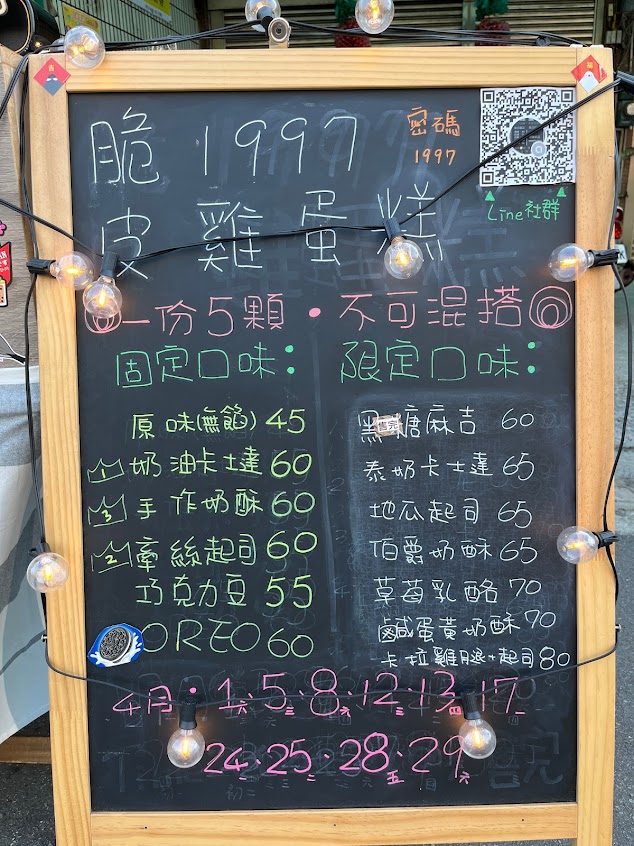 吉
脆 1997
密碼
1997
皮雞蛋糕
Line社群
一份5顆・不可混搭
固定口味:
限定口味:
原味(無餡) 45
1 奶油卡士達 60
3 手作奶酥 60
2 牽絲起司 60
巧克力豆 55
OREO 60
黑糖麻吉 60
泰奶卡士達 65
地瓜起司 65
伯爵奶酥 65
草莓乳酪 70
鹹蛋黃奶酥 70
卡拉雞腿+起司 80
4月・1六、5三、8六、12三、13四、17一
24一、25二、28五、29六